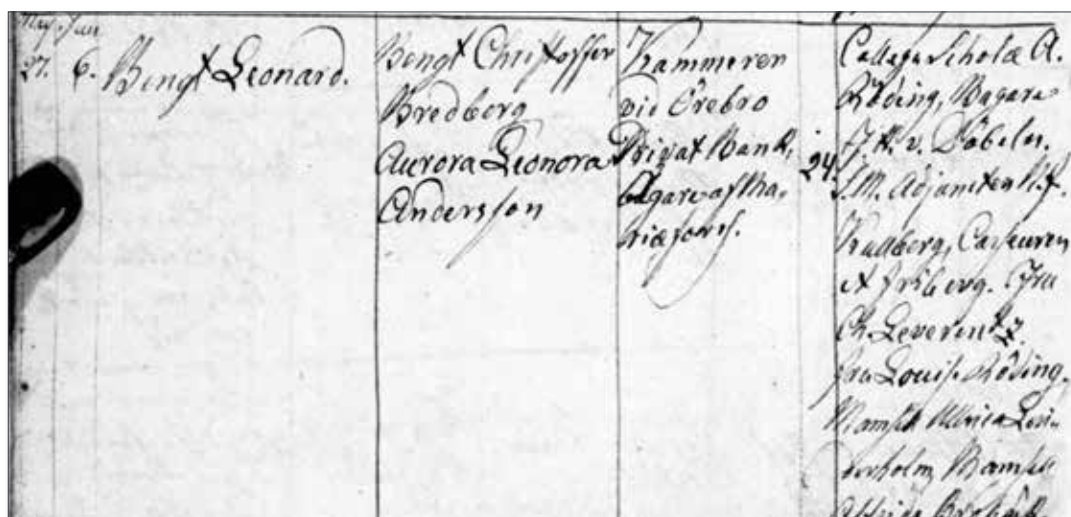 May. Jun
27. 6. Bengt Leonard.
Bengt Christoffer
Bredberg
Aurora Leonora
Andersson
Kammerer
vid Örebro
Privat Bank,
ägare af Ma-
riæfors.
24.
Collega Scholæ A.
Röding, Bagare
v. Döbeln.
S. M. Adjuncten
Kullberg,
et Friberg. Fru
Ch. Leverentz.
Fru Louis. Röding.
Mamsell Ulrica
Mamsell